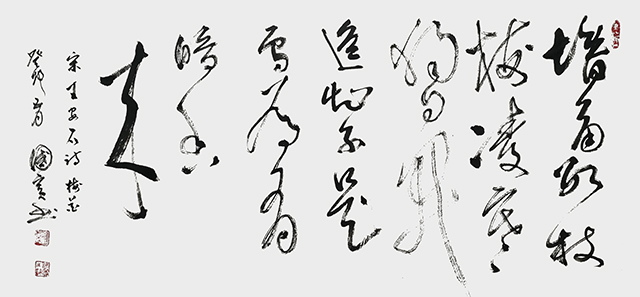 墙角数枝
梅凌寒
独自开
遥知不是
雪为有
暗香
来
宋王安石诗梅花
癸卯